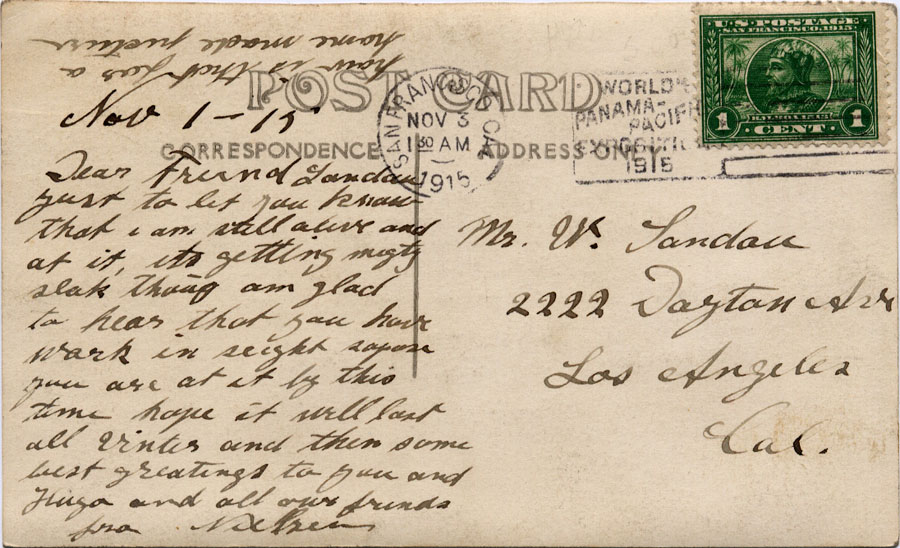 how is that for a
home made picture
POST CARD
Nov 1-15
CORRESPONDENCE
ADDRESS ONLY
SAN FRANCISCO, CAL.
NOV 3
1 30 AM
1915
WORLD'S
PANAMA-
PACIFIC
EXPOSITION
1915
U.S. POSTAGE
SAN FRANCISCO 1915
BALBOA 1513
1 CENT 1
Dear Freund Landau
just to let you know
that i am still alive and
at it, its gettling migty
slak thoug am glad
to hear that you have
work in seight sopose
you are at it by this
time hope it will last
all Vinter and then some
best greatings to you and
Hugo and all our friends
fra Nielsen
Mr. W. Landau
2222 Dayton Ave
Los Angeles
Cal.